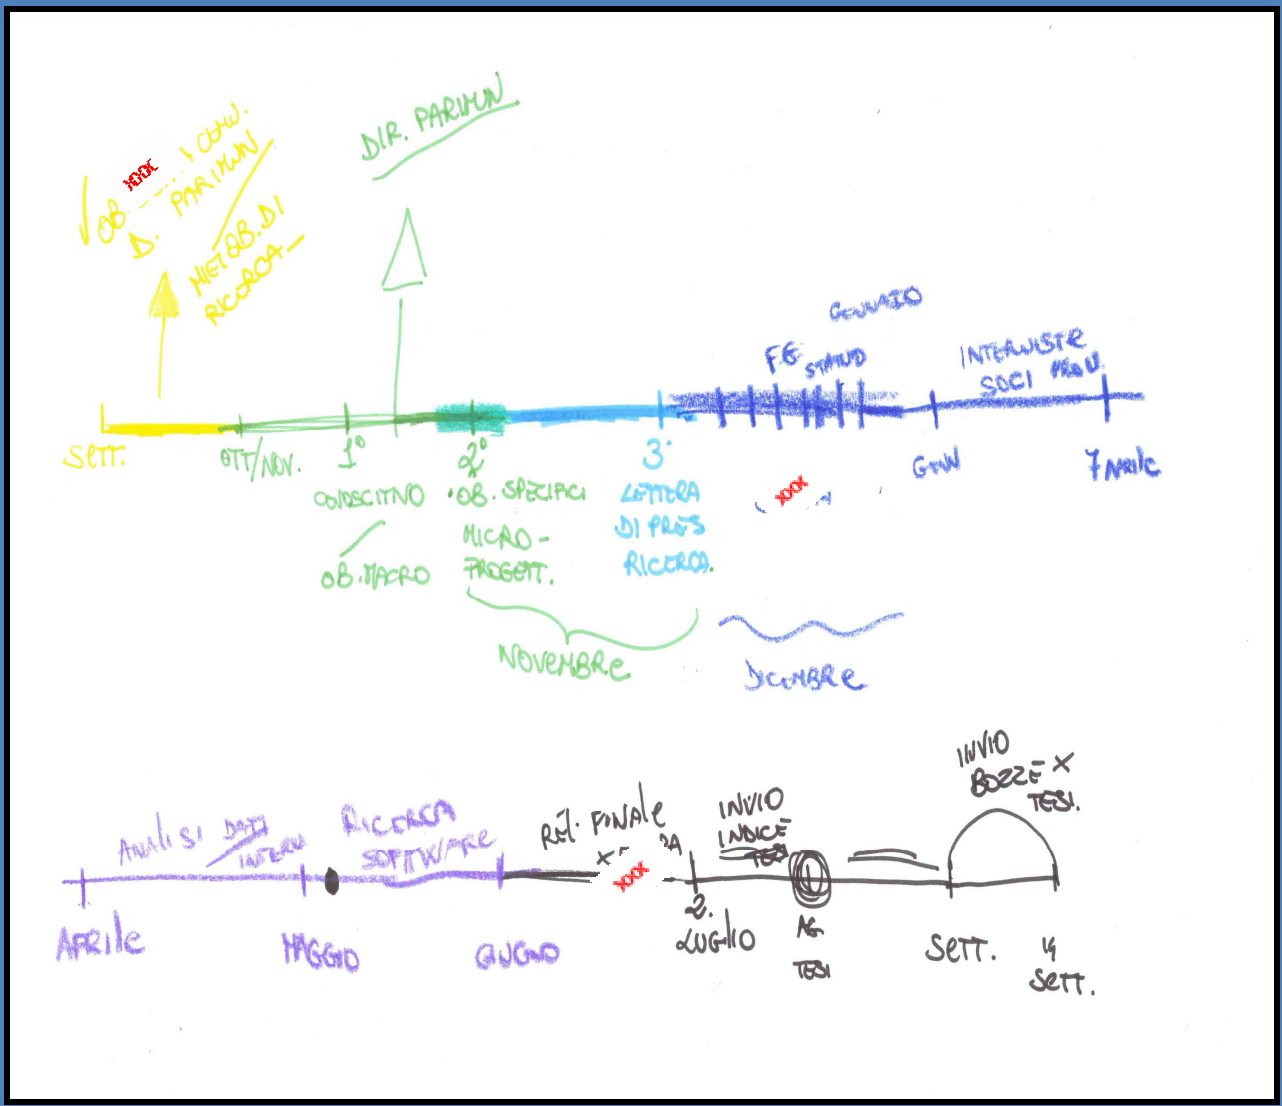 OB. XXX COM.
D. PARIMUN
METOB. DI
RICERCA
DIR. PARIMUN
GENNAIO
F.G.
STAND
INTERVISTE
SOCI PROV.
SETT.
OTT/NOV.
1°
2°
3°
GEN
7 APRILE
CONOSCITIVO
OB. MACRO
OB. SPECIFICI
MICRO-
PROGETT.
LETTERA
DI PRES
RICERCA.
XXX
NOVEMBRE
DICEMBRE
ANALISI DATI
INTERV
RICERCA
SOFTWARE
REL. FINALE
X
XXX
INVIO
INDICE
TESI
INVIO
BOZZE X
TESI.
APRILE
MAGGIO
GIUGNO
2.
LUGLIO
AG.
TESI
SETT.
14
SETT.